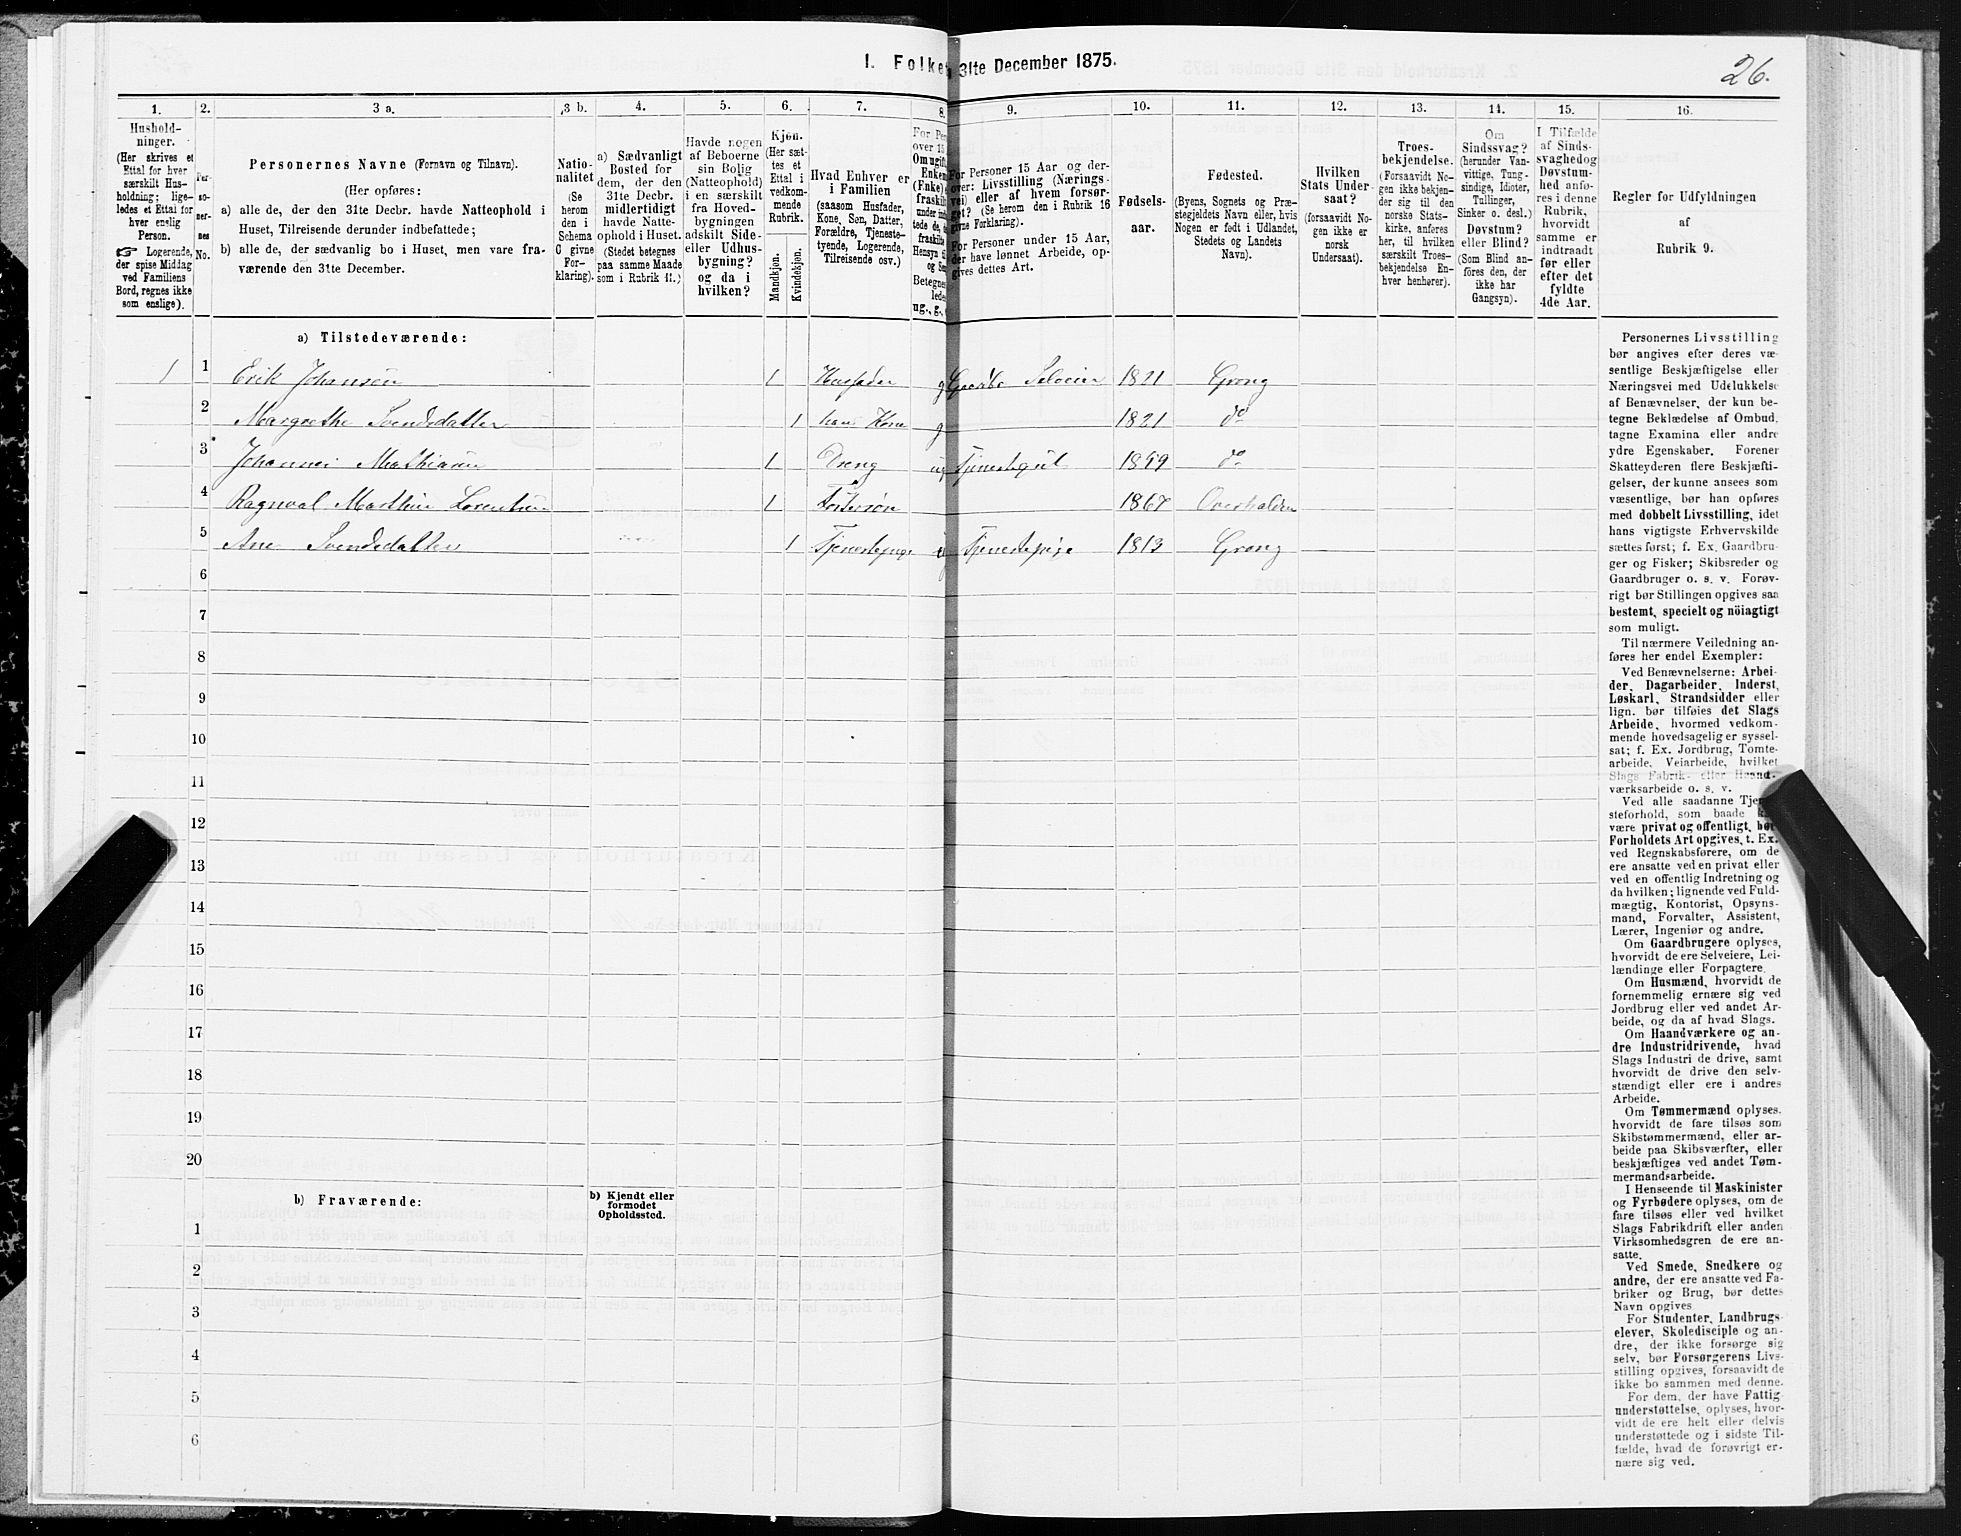 I. Folke 31te December 1875.
26.
1.
Hushold-
ninger.
(Her skrives et
Ettal for hver
særskilt Hus-
holdning; lige-
ledes et Ettal for
hver enslig
Person.
☞ Logerende,
der spise Middag
ved Familiens
Bord, regnes ikke
som enslige).
2.
Per-
so-
ner-
nes
No.
3 a.
Personernes Navne (Fornavn og Tilnavn).
(Her opføres:
a) alle de, der den 31te Decbr. havde Natteophold i
Huset, Tilreisende derunder indbefattede;
b) alle de, der sædvanlig bo i Huset, men vare fra-
værende den 31te December.
3 b.
Natio-
nalitet
(Se
herom
den i
Schema
O givne
For-
klaring).
4.
a) Sædvanligt
Bosted for
dem, der den
31te Decbr.
midlertidigt
havde Natte-
ophold i Huset.
(Stedet betegnes
paa samme Maade
som i Rubrik 11.)
5.
Havde nogen
af Beboerne
sin Bolig
(Natteophold)
i en særskilt
fra Hoved-
bygningen
adskilt Side-
eller Udhus-
bygning?
og da i
hvilken?
6.
Kjøn.
(Her sæt-
tes et
Ettal i
vedkom-
mende
Rubrik.
Mandkjøn.
Kvindekjøn.
7.
Hvad Enhver er
i Familien
(saasom Husfader,
Kone, Søn, Datter,
Forældre, Tjeneste-
tyende, Logerende,
Tilreisende osv.)
8.
For Per
over 15
Om ugift
Enken
(Enke),
fraskilt
under inde
tede de,
fraskilte
Hensyn til
og Se
Betegnes
lede
ug., g.,
9.
For Personer 15 Aar og der-
over: Livsstilling (Nærings-
vei) eller af hvem forsør-
get? (Se herom den i Rubrik 16
givne Forklaring).
For Personer under 15 Aar,
der have lønnet Arbeide, op-
gives dettes Art.
10.
Fødsels-
aar.
11.
Fødested.
(Byens, Sognets og Præ-
stegjeldets Navn eller, hvis
Nogen er født i Udlandet,
Stedets og Landets
Navn).
12.
Hvilken
Stats Under-
saat?
(forsaavidt No-
gen ikke er
norsk
Undersaat).
13.
Troes-
bekjendelse.
(Forsaavidt No-
gen ikke bekjen-
der sig til den
norske Stats-
kirke, anføres
her, til hvilken
særskilt Troes-
bekjendelse En-
hver henhører).
14.
Om
Sindssvag?
(herunder Van-
vittige, Tung-
sindige, Idioter,
Tullinger,
Sinker o. desl.)
Døvstum?
eller Blind?
(Som Blind an-
føres den, der
ikke har
Gangsyn).
15.
I Tilfælde
af Sinds-
svaghed og
Døvstum-
hed anfø-
res i denne
Rubrik,
hvorvidt
samme er
indtraadt
før eller
efter det
fyldte
4de Aar.
16.
Regler for Udfyldningen
af
Rubrik 9.
a) Tilstedeværende:
1 1 Erik Johansen 1 Husfader g Gaardbr Selveier 1821 Grong
2 Margrethe Svendsdatter 1 hans Kone g 1821 do
3 Johannes Mathiasen 1 Dreng ug Tjenestegut 1859 do
4 Ragnval Marthin Lorentsen 1 Fostersøn 1867 Overhalden
5 Ane Svendsdatter 1 Tjenestepige ug Tjenestepige 1813 Grong
6
7
8
9
10
11
12
13
14
15
16
17
18
19
20
b) Fraværende:
b) Kjendt eller
formodet
Opholdssted.
1
2
3
4
5
6
Personernes Livsstilling
bør angives efter deres væ-
sentlige Beskjæftigelse eller
Næringsvei med Udelukkelse
af Benævnelser, der kun be-
tegne Beklædelse af Ombud,
tagne Examina eller andre
ydre Egenskaber. Forener
Skatteyderen flere Beskjæfti-
gelser, der kunne ansees som
væsentlige, bør han opføres
med dobbelt Livsstilling, idet
hans vigtigste Erhvervskilde
sættes først; f. Ex. Gaardbru-
ger og Fisker; Skibsreder og
Gaardbruger o. s. v. Forøv-
rigt bør Stillingen opgives saa
bestemt, specielt og nöiagtigt
som muligt.
Til nærmere Veiledning an-
føres her endel Exempler:
Ved Benævnelserne: Arbei-
der, Dagarbeider, Inderst,
Løskarl, Strandsidder eller
lign. bør tilføies det Slags
Arbeide, hvormed vedkom-
mende hovedsagelig er syssel-
sat; f. Ex. Jordbrug, Tomte-
arbeide, Veiarbeide, hvilket
Slags Fabrik- eller Haand-
værksarbeide o. s. v.
Ved alle saadanne Tjene-
steforhold, som baade kan
være privat og offentligt, bør
Forholdets Art opgives, t. Ex.
ved Regnskabsførere, om de
ere ansatte ved en privat eller
ved en offentlig Indretning og
da hvilken; lignende ved Fuld-
mægtig, Kontorist, Opsyns-
mand, Forvalter, Assistent,
Lærer, Ingeniør og andre.
Om Gaardbrugere oplyses,
hvorvidt de ere Selveiere, Lei-
lændinge eller Forpagtere.
Om Husmænd, hvorvidt de
fornemmelig ernære sig ved
Jordbrug eller ved andet Ar-
beide, og da af hvad Slags.
Om Haandværkere og an-
dre Industridrivende, hvad
Slags Industri de drive, samt
hvorvidt de drive den selv-
stændigt eller ere i andres
Arbeide.
Om Tømmermænd oplyses,
hvorvidt de fare tilsøs som
Skibstømmermænd, eller ar-
beide paa Skibsværfter, eller
beskjæftiges ved andet Tøm-
mermandsarbeide.
I Henseende til Maskinister
og Fyrbødere oplyses, om de
fare tilsøs eller ved hvilket
Slags Fabrikdrift eller anden
Virksomhedsgren de ere an-
satte.
Ved Smede, Snedkere og
andre, der ere ansatte ved Fa-
briker og Brug, bør dettes
Navn opgives
For Studenter, Landbrugs-
elever, Skoledisciple og an-
dre, der ikke forsørge sig
selv, bør Forsørgerens Livs-
stilling opgives, forsaavidt de
ikke bo sammen med denne.
For dem, der have Fattig
understøttelse, oplyses, hvor-
vidt de ere helt eller delvis
understøttede og i sidste Til-
fælde, hvad de forøvrigt er-
nære sig ved.